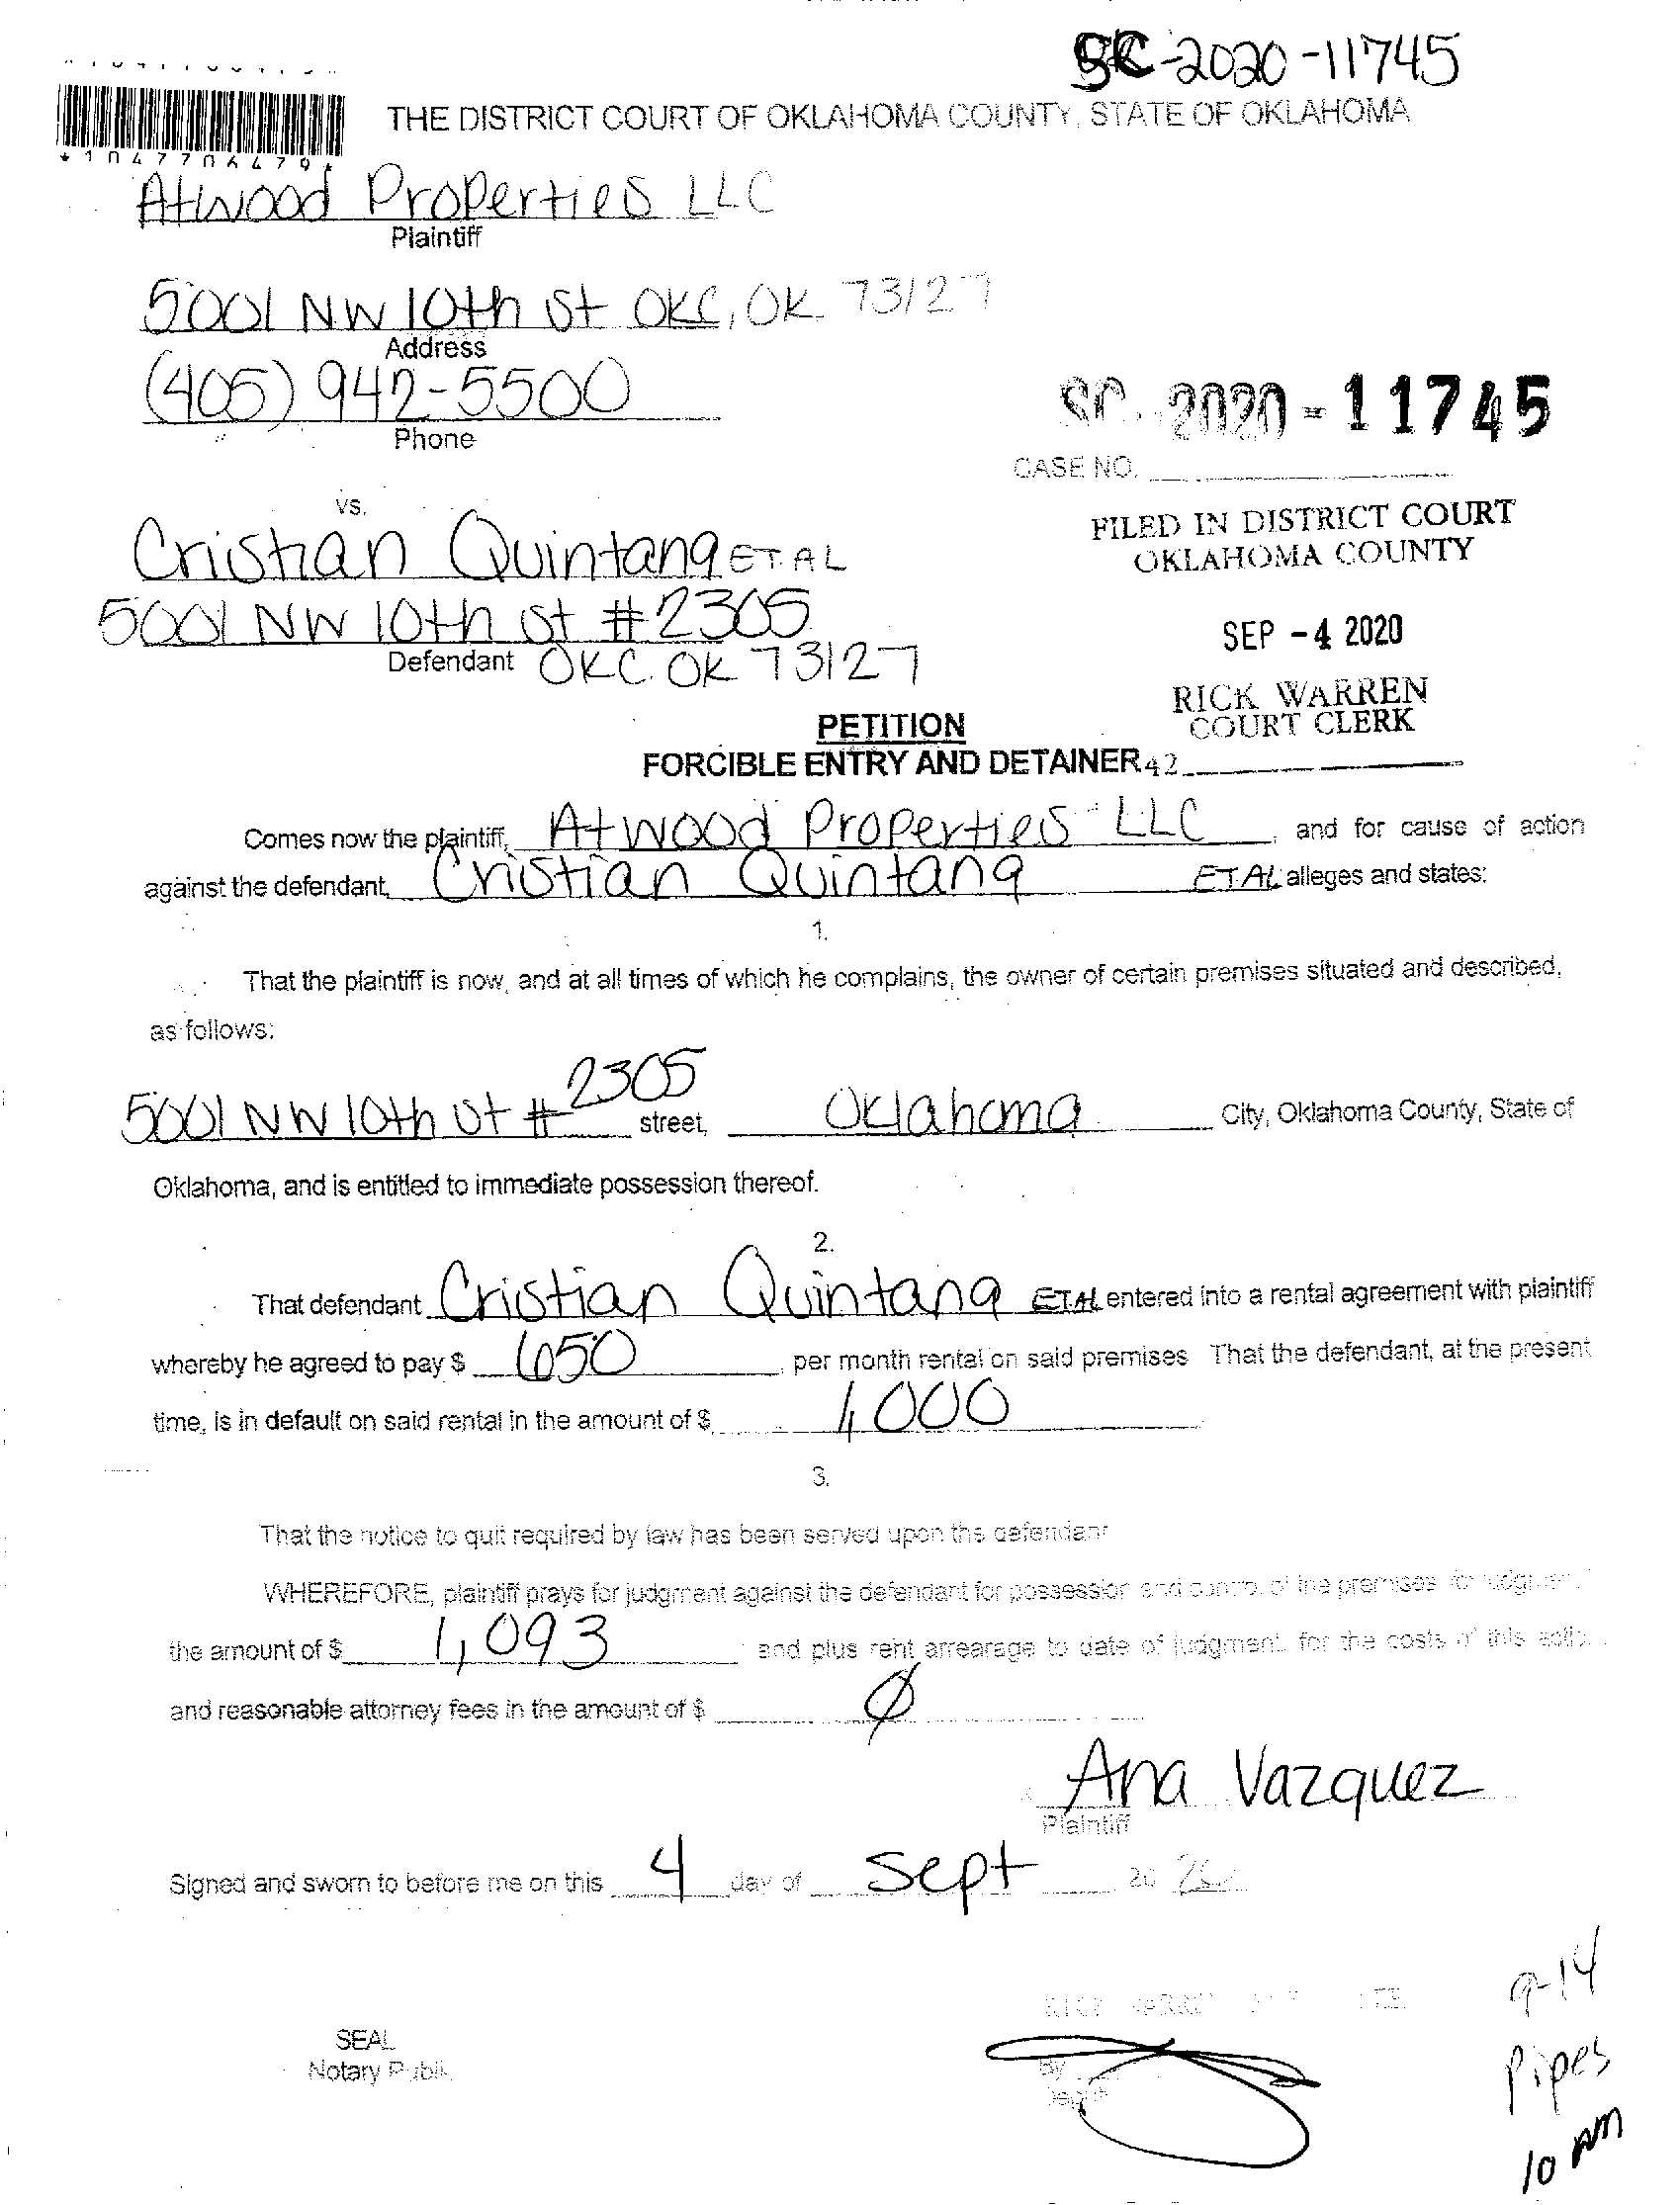 SC-2020-11745
THE DISTRICT COURT OF OKLAHOMA COUNTY, STATE OF OKLAHOMA
*1047706479*
Atwood Properties LLC
Plaintiff
5001 NW 10th St OKC, OK 73127
Address
(405) 942-5500
Phone
SC-2020-11745
CASE NO.
vs.
FILED IN DISTRICT COURT
OKLAHOMA COUNTY
Cristian Quintana ET AL
5001 NW 10th St #2305
SEP -4 2020
Defendant OKC. OK 73127
RICK WARREN
COURT CLERK
PETITION
FORCIBLE ENTRY AND DETAINER 42
Comes now the plaintiff, Atwood Properties LLC, and for cause of action
against the defendant, Cristian Quintana ET AL alleges and states:
1.
That the plaintiff is now, and at all times of which he complains, the owner of certain premises situated and described,
as follows:
5001 NW 10th St # 2305 street, Oklahoma City, Oklahoma County, State of
Oklahoma, and is entitled to immediate possession thereof.
2.
That defendant Cristian Quintana ET AL entered into a rental agreement with plaintiff
whereby he agreed to pay $ 650, per month rental on said premises That the defendant, at the present
time, is in default on said rental in the amount of $ 1,000
3.
That the notice to quit required by law has been served upon the defendant
WHEREFORE, plaintiff prays for judgment against the defendant for possession and control of the premises for
the amount of $ 1,093 and plus rent arrearage to date of judgment, for the costs of this
and reasonable attorney fees in the amount of $ Ø
Ana Vazquez
Plaintiff
Signed and sworn to before me on this 4 day of Sept 20 20
9-14
Pipes
10 AM
SEAL
Notary Public
By